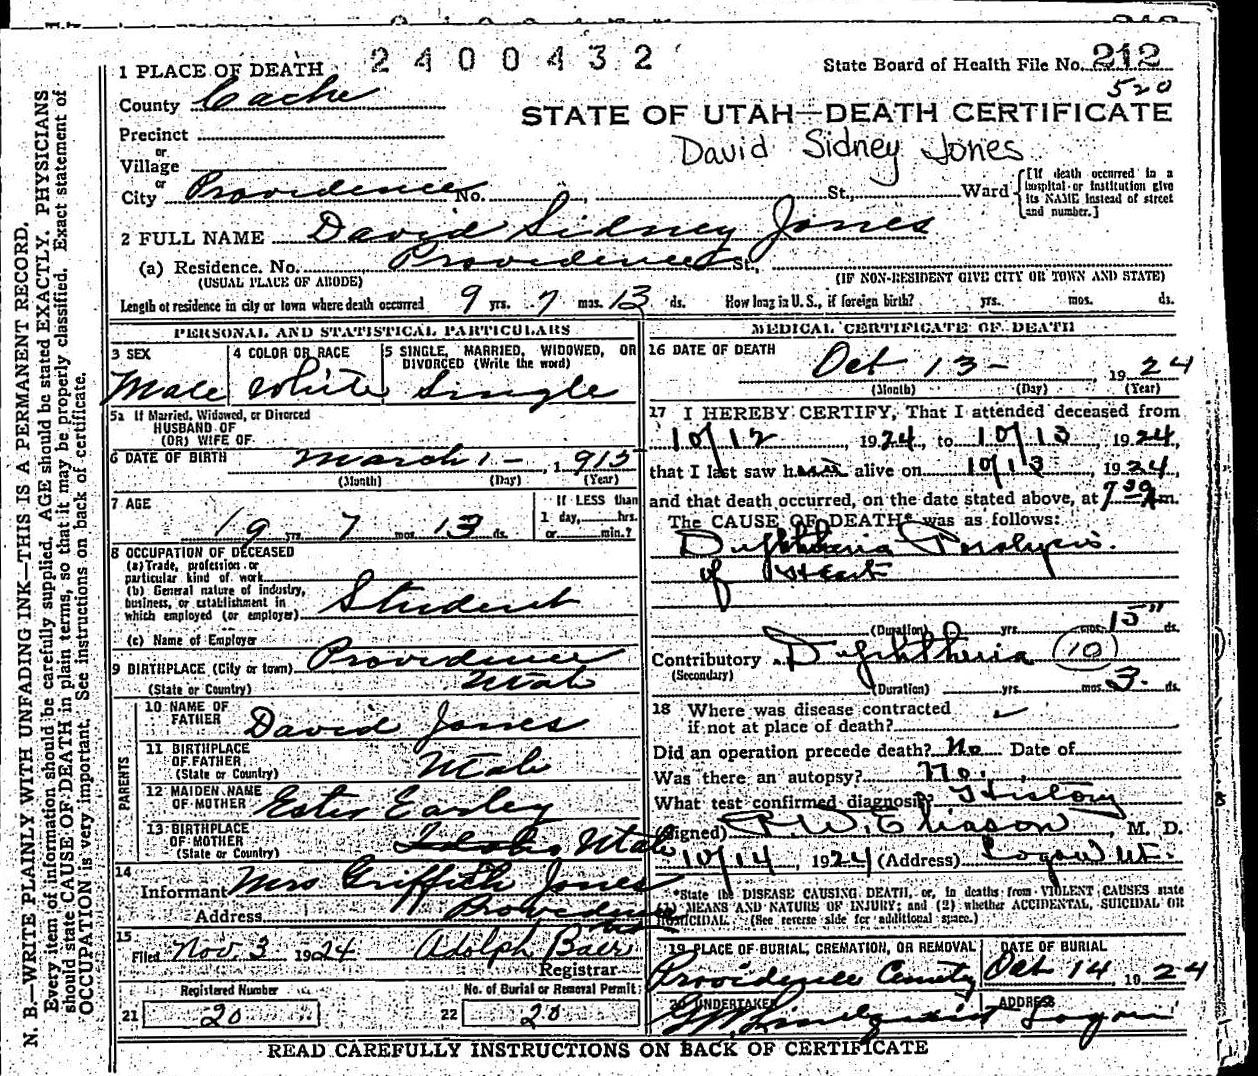 2400432
1 PLACE OF DEATH
State Board of Health File No. 212
520
County Cache
STATE OF UTAH—DEATH CERTIFICATE
Precinct
David Sidney Jones
or
Village
or
City Providence No. , St., Ward
[If death occurred in a hospital or institution give its NAME instead of street and number.]
2 FULL NAME David Sidney Jones
(a) Residence. No. Providence St.,
(USUAL PLACE OF ABODE)
(IF NON-RESIDENT GIVE CITY OR TOWN AND STATE)
Length of residence in city or town where death occurred 9 yrs. 7 mos. 13 ds. How long in U. S., if foreign birth? yrs. mos. ds.
PERSONAL AND STATISTICAL PARTICULARS
3 SEX
Male
4 COLOR OR RACE
White
5 SINGLE, MARRIED, WIDOWED, OR
DIVORCED (Write the word)
Single
5a If Married, Widowed, or Divorced
HUSBAND OF
(OR) WIFE OF
6 DATE OF BIRTH March 1 - , 1915
(Month) (Day) (Year)
7 AGE
19 yrs. 7 mos. 13 ds.
If LESS than
1 day, hrs.
or min.?
8 OCCUPATION OF DECEASED
(a) Trade, profession or
particular kind of work
(b) General nature of industry,
business, or establishment in
which employed (or employer) Student
(c) Name of Employer
9 BIRTHPLACE (City or town) Providence
(State or Country) Utah
PARENTS
10 NAME OF
FATHER David Jones
11 BIRTHPLACE
OF FATHER
(State or Country) Utah
12 MAIDEN NAME
OF MOTHER Ester Earley
13 BIRTHPLACE
OF MOTHER
(State or Country) Utah
14
Informant Mrs Griffith Jones
Address Providence
15
Filed Nov. 3 1924 Adolph Baer
Registrar
Registered Number
21 20
No. of Burial or Removal Permit
22 20
MEDICAL CERTIFICATE OF DEATH
16 DATE OF DEATH
Oct 13 - 1924
(Month) (Day) (Year)
17 I HEREBY CERTIFY, That I attended deceased from
10/12, 1924, to 10/13, 1924,
that I last saw h alive on 10/13 1924,
and that death occurred, on the date stated above, at 7 30 m.
The CAUSE OF DEATH* was as follows:
Diphtheria Paralysis
of Heart
(Duration) yrs. mos. 15 ds.
Contributory Diphtheria (10)
(Secondary)
(Duration) yrs. mos. 3 ds.
18 Where was disease contracted
if not at place of death?
Did an operation precede death? No Date of
Was there an autopsy? No.
What test confirmed diagnosis? History
(Signed) P. W. Eliason, M. D.
10/14, 1924 (Address) Logan Ut.
*State the DISEASE CAUSING DEATH, or, in deaths from VIOLENT CAUSES state
(1) MEANS AND NATURE OF INJURY; and (2) whether ACCIDENTAL, SUICIDAL OR
HOMICIDAL. (See reverse side for additional space.)
19 PLACE OF BURIAL, CREMATION, OR REMOVAL
Providence
DATE OF BURIAL
Oct 14 1924
20 UNDERTAKER
G W Lindquist
ADDRESS
Logan
READ CAREFULLY INSTRUCTIONS ON BACK OF CERTIFICATE
N. B.—WRITE PLAINLY WITH UNFADING INK—THIS IS A PERMANENT RECORD.
Every item of information should be carefully supplied. AGE should be stated EXACTLY. PHYSICIANS
should state CAUSE OF DEATH in plain terms, so that it may be properly classified. Exact statement of
OCCUPATION is very important. See instructions on back of certificate.